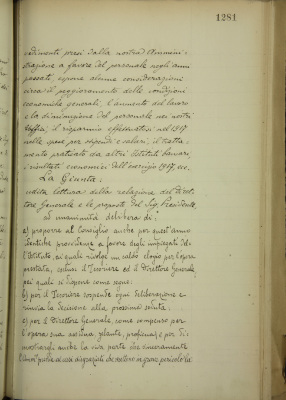 1281
vedimenti presi dalla nostra Ammini-
strazione a favore del personale negli anni
passati, espone alcune considerazioni
circa il peggioramento delle condizioni
economiche generali, l'aumento del lavoro
e la diminuzione del personale nei nostri
uffici, il risparmio effettuatosi nel 1917
nelle spese per stipendi e salari, il tratta-
mento praticato da altri Istituti bancari,
i risultati economici dell'esercizio 1917, ecc.
La Giunta:
udita lettura della relazione del Diret-
tore Generale e le proposte del Sig. Presidente
ad unanimità delibera di:
a) proporre al Consiglio anche per quest'anno
identiche provvidenze a favore degli impiegati del-
l'Istituto, ai quali rivolge un caldo elogio per l'opera
prestata, esclusi il Tesoriere ed il Direttore Generale
pei quali si dispone come segue:
b) per il Tesoriere sospende ogni deliberazione e
rinvia la decisione alla prossima seduta
c) per il Direttore Generale, come compenso per
l'opera sua assidua, zelante, profonda; e per di-
mostrargli anche la viva parte che sinceramente